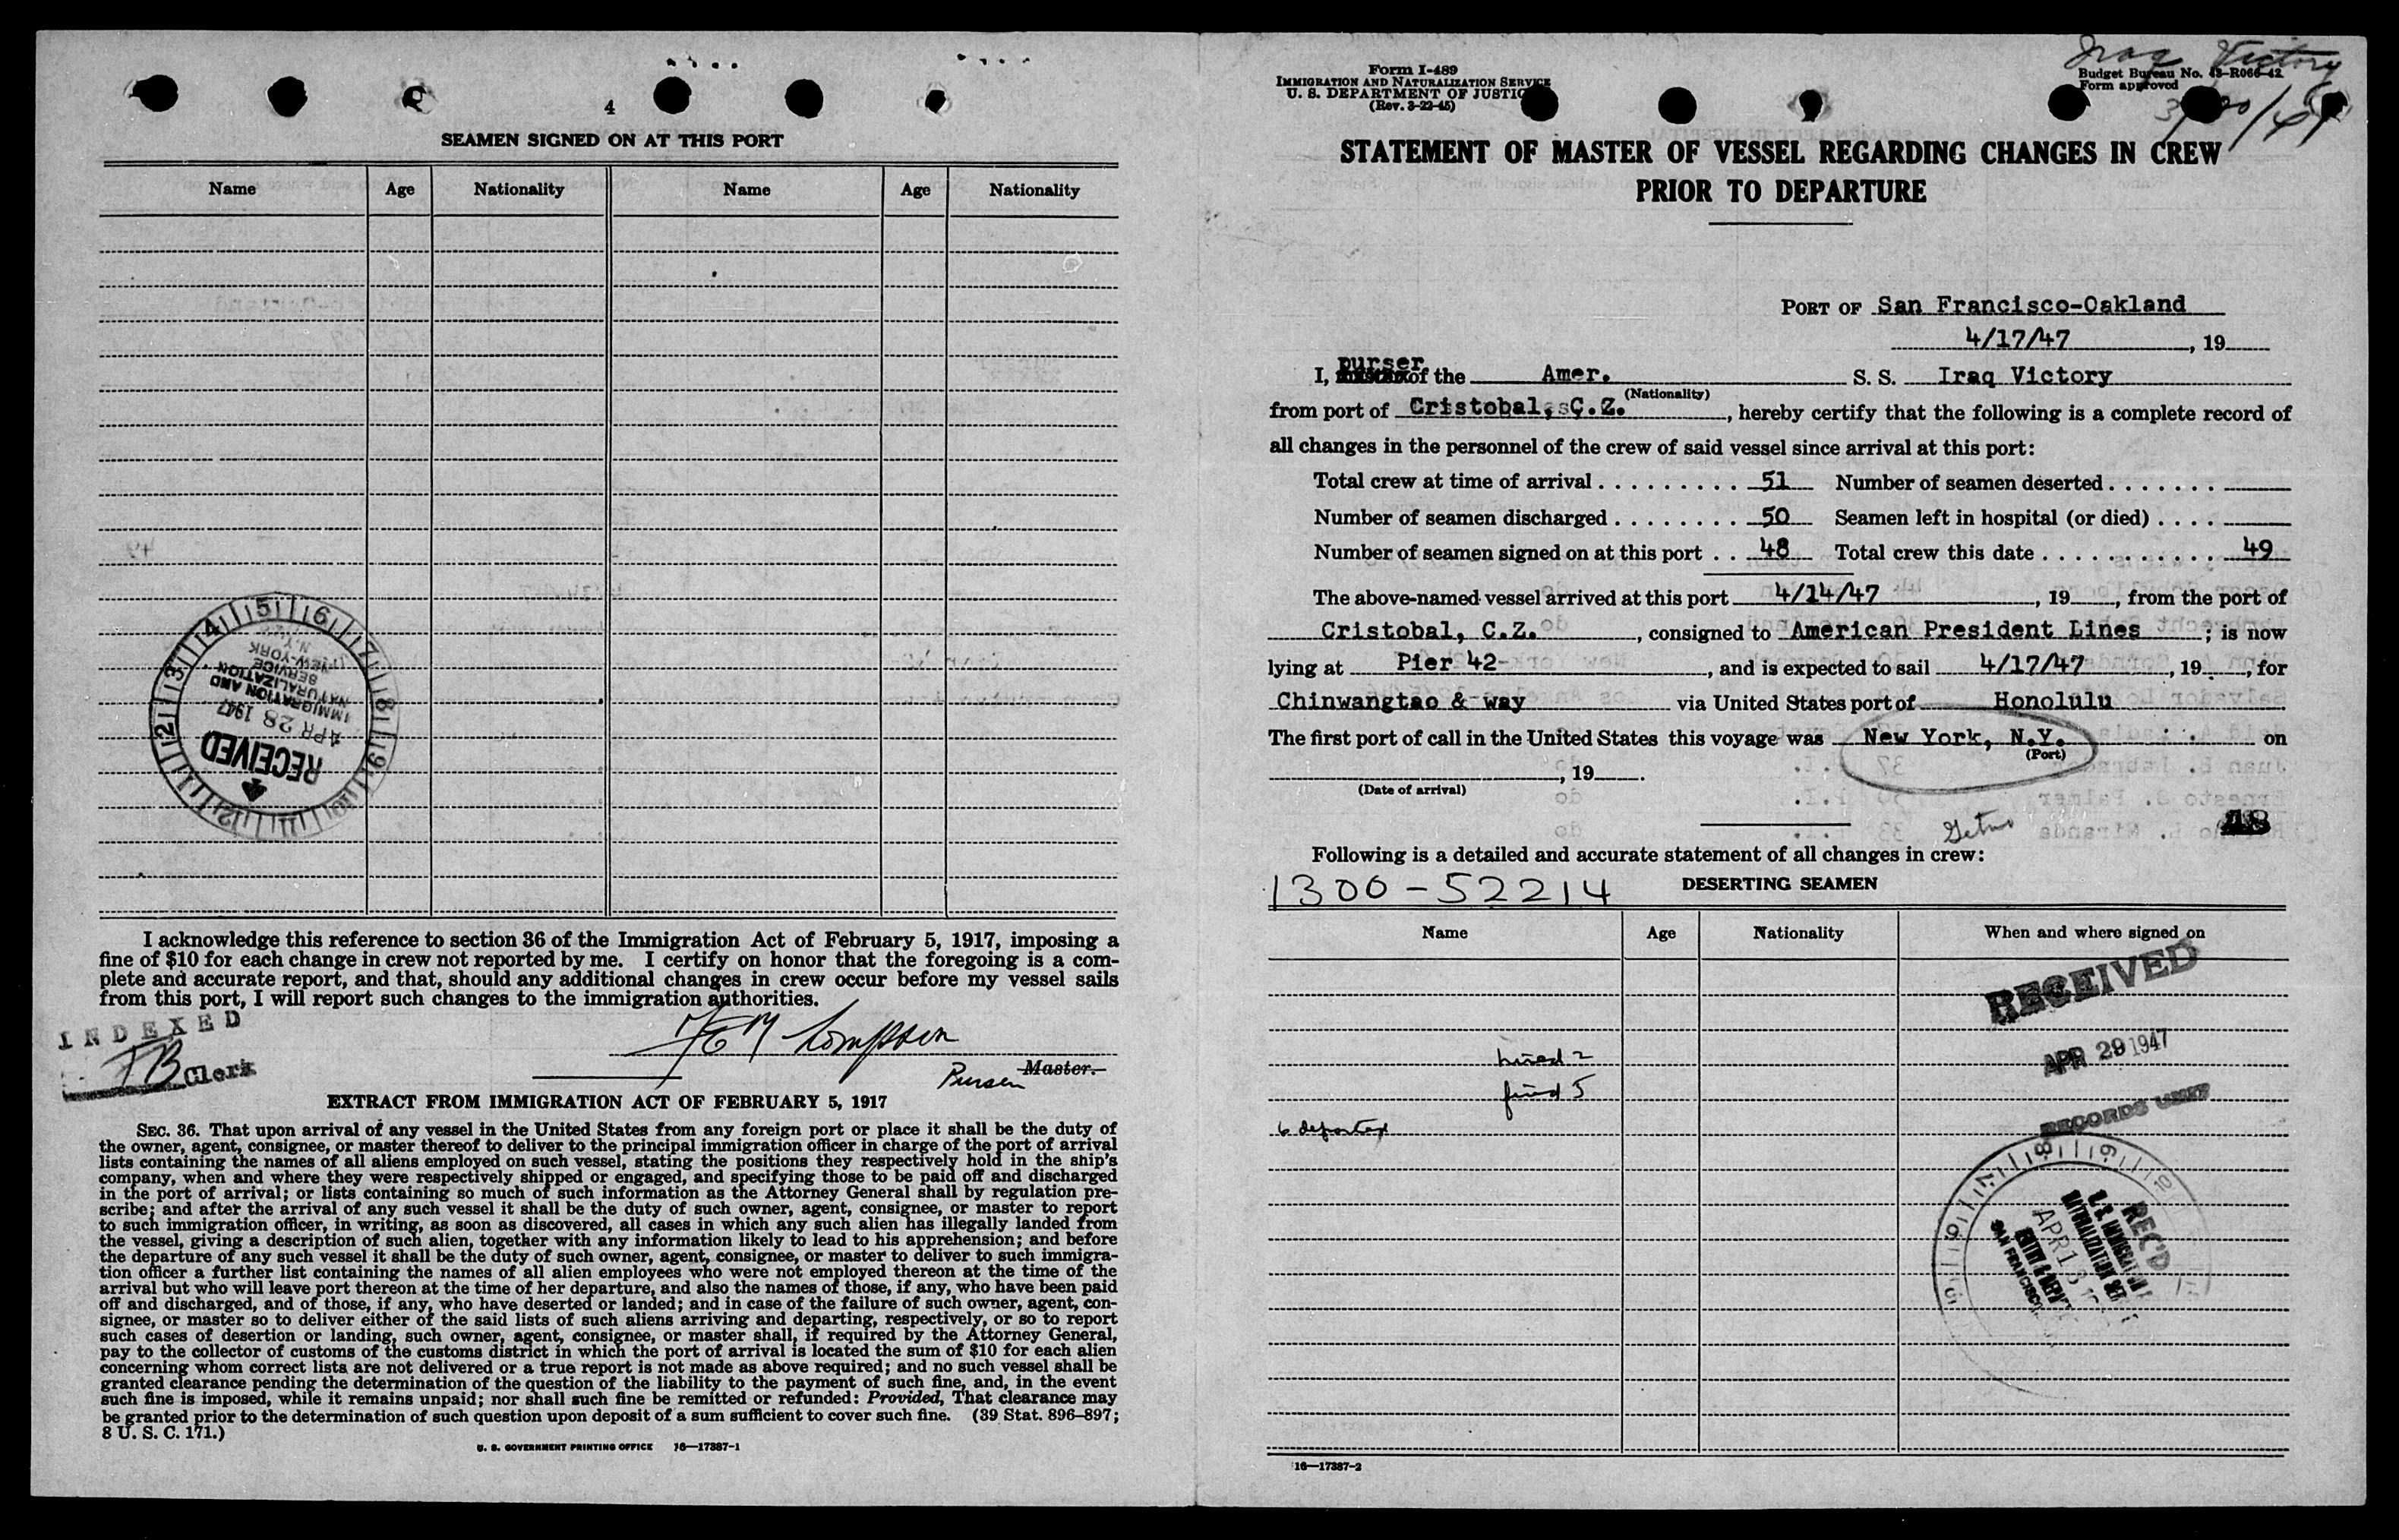 4
SEAMEN SIGNED ON AT THIS PORT
Name Age Nationality Name Age Nationality
5 6 7 8 9 10 11 12 1 2 3 4
NEW YORK
N.Y.
IMMIGRATION AND
NATURALIZATION
SERVICE
APR 28 1947
RECEIVED
I acknowledge this reference to section 36 of the Immigration Act of February 5, 1917, imposing a
fine of $10 for each change in crew not reported by me. I certify on honor that the foregoing is a com-
plete and accurate report, and that, should any additional changes in crew occur before my vessel sails
from this port, I will report such changes to the immigration authorities.
INDEXED
TB Clerk
Thompson
Master.
Purser
EXTRACT FROM IMMIGRATION ACT OF FEBRUARY 5, 1917
SEC. 36. That upon arrival of any vessel in the United States from any foreign port or place it shall be the duty of
the owner, agent, consignee, or master thereof to deliver to the principal immigration officer in charge of the port of arrival
lists containing the names of all aliens employed on such vessel, stating the positions they respectively hold in the ship's
company, when and where they were respectively shipped or engaged, and specifying those to be paid off and discharged
in the port of arrival; or lists containing so much of such information as the Attorney General shall by regulation pre-
scribe; and after the arrival of any such vessel it shall be the duty of such owner, agent, consignee, or master to report
to such immigration officer, in writing, as soon as discovered, all cases in which any such alien has illegally landed from
the vessel, giving a description of such alien, together with any information likely to lead to his apprehension; and before
the departure of any such vessel it shall be the duty of such owner, agent, consignee, or master to deliver to such immigra-
tion officer a further list containing the names of all alien employees who were not employed thereon at the time of the
arrival but who will leave port thereon at the time of her departure, and also the names of those, if any, who have been paid
off and discharged, and of those, if any, who have deserted or landed; and in case of the failure of such owner, agent, con-
signee, or master so to deliver either of the said lists of such aliens arriving and departing, respectively, or so to report
such cases of desertion or landing, such owner, agent, consignee, or master shall, if required by the Attorney General,
pay to the collector of customs of the customs district in which the port of arrival is located the sum of $10 for each alien
concerning whom correct lists are not delivered or a true report is not made as above required; and no such vessel shall be
granted clearance pending the determination of the question of the liability to the payment of such fine, and, in the event
such fine is imposed, while it remains unpaid; nor shall such fine be remitted or refunded: Provided, That clearance may
be granted prior to the determination of such question upon deposit of a sum sufficient to cover such fine. (39 Stat. 896–897;
8 U. S. C. 171.)
U. S. GOVERNMENT PRINTING OFFICE 16—17387-1
Form I-489
IMMIGRATION AND NATURALIZATION SERVICE
U. S. DEPARTMENT OF JUSTICE
(Rev. 3-22-45)
Iraq Victory
Budget Bureau No. 43-R066-42
Form approved
STATEMENT OF MASTER OF VESSEL REGARDING CHANGES IN CREW
PRIOR TO DEPARTURE
PORT OF San Francisco-Oakland
4/17/47, 19
purser
I, of the Amer. S. S. Iraq Victory
(Nationality)
from port of Cristobal, C.Z., hereby certify that the following is a complete record of
all changes in the personnel of the crew of said vessel since arrival at this port:
Total crew at time of arrival 51 Number of seamen deserted
Number of seamen discharged 50 Seamen left in hospital (or died)
Number of seamen signed on at this port 48 Total crew this date 49
The above-named vessel arrived at this port 4/14/47, 19, from the port of
Cristobal, C.Z., consigned to American President Lines; is now
lying at Pier 42, and is expected to sail 4/17/47, 19, for
Chinwangtao & way via United States port of Honolulu
The first port of call in the United States this voyage was New York, N.Y. on
(Port)
, 19.
(Date of arrival)
48
Following is a detailed and accurate statement of all changes in crew:
1300-52214
DESERTING SEAMEN
Name Age Nationality When and where signed on
RECEIVED
APR 29 1947
RECORDS UNIT
6 departed
REC'D
SAN FRANCISCO
16—17387-2